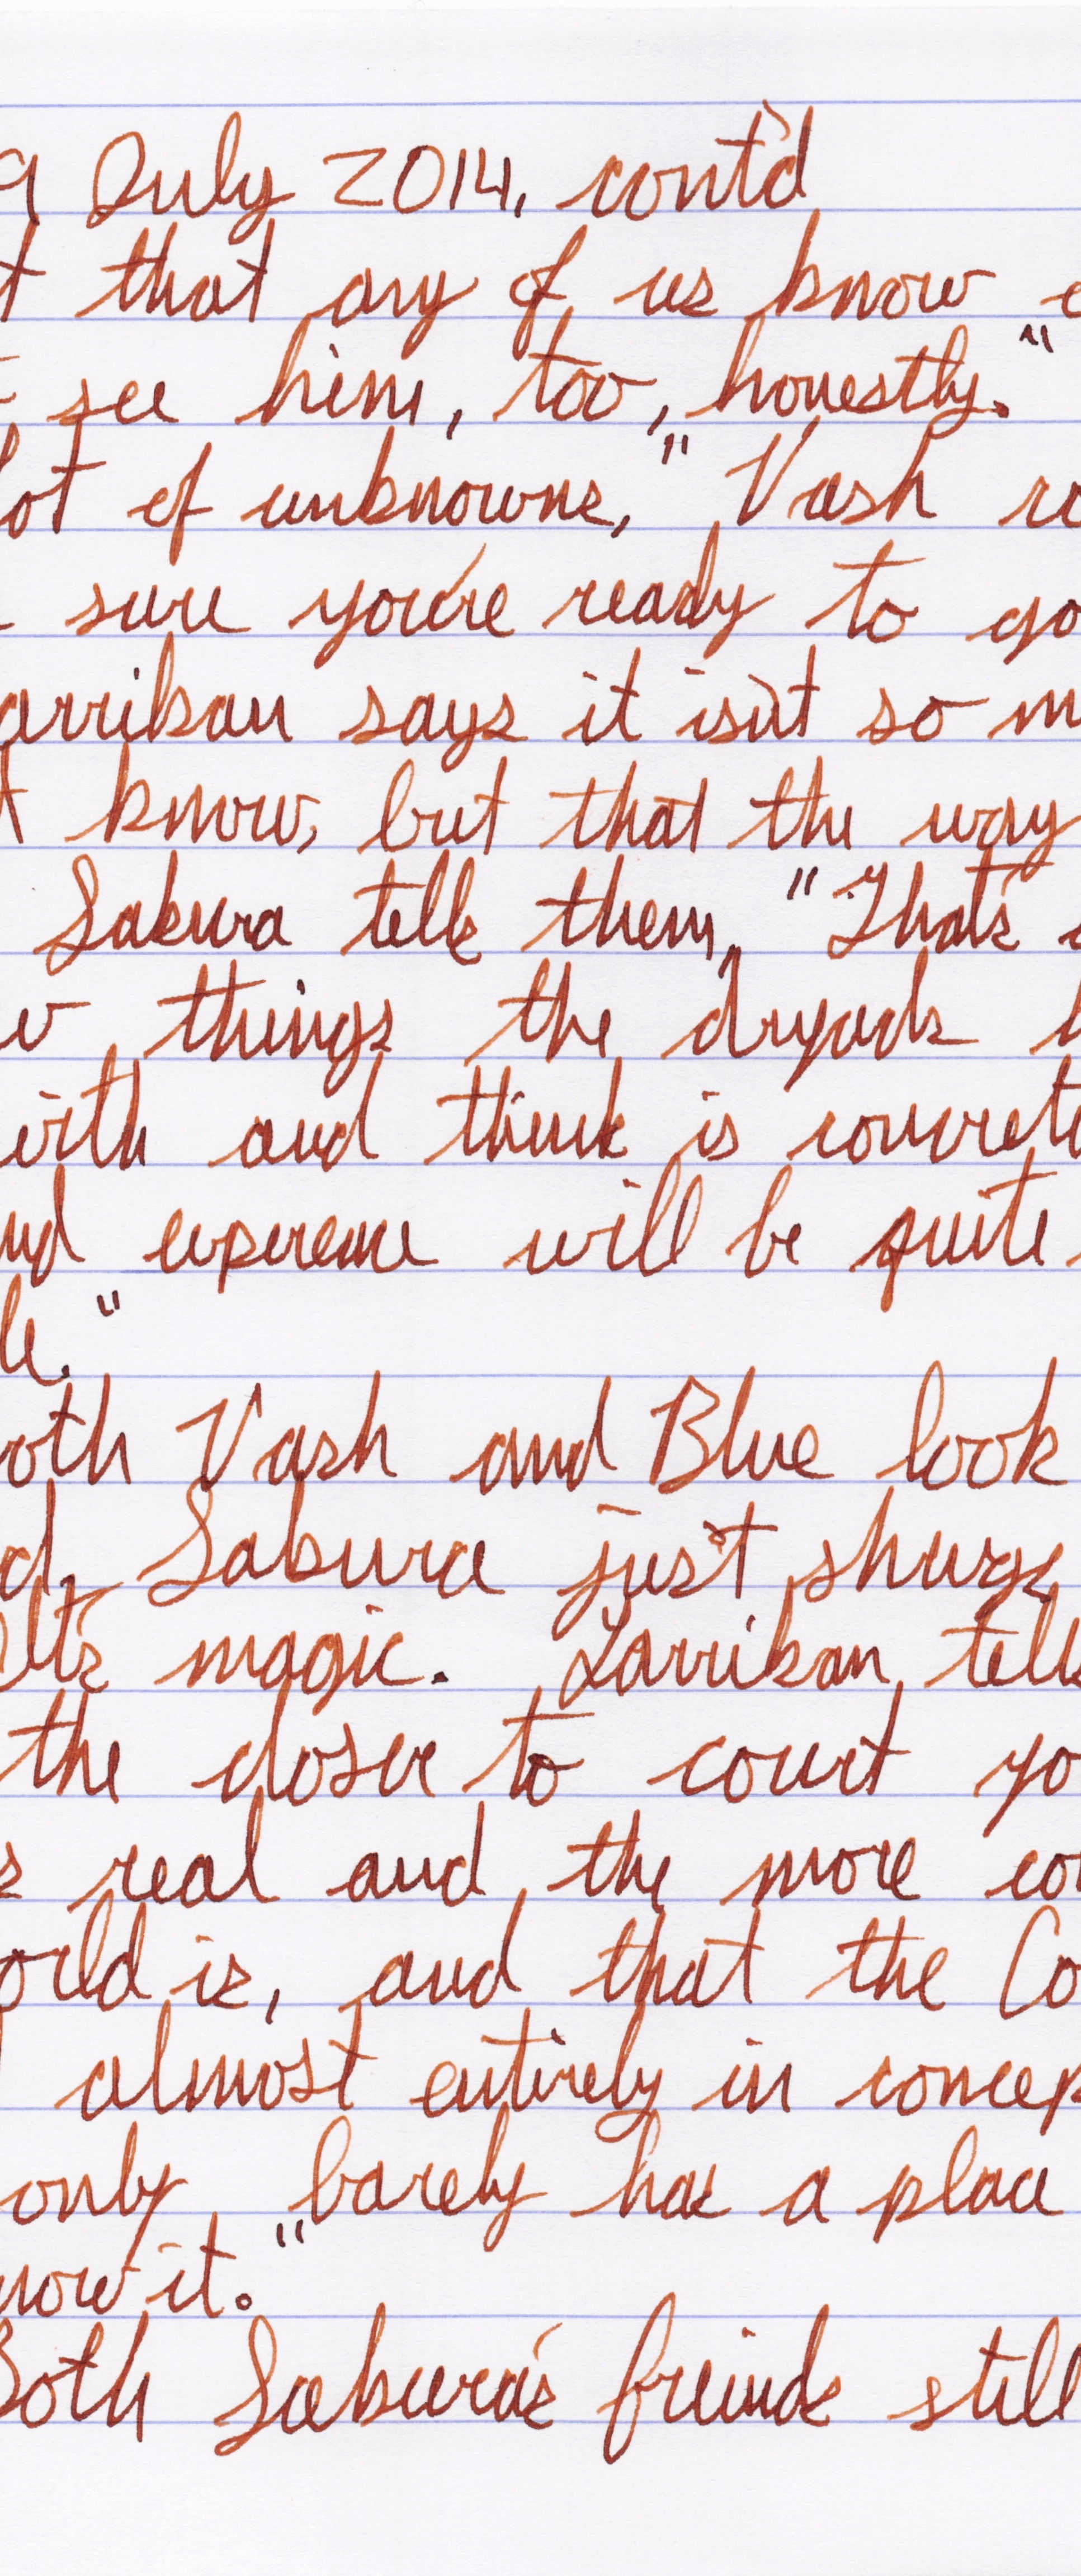 9 July 2014, cont'd
t that any of us know
see him, too, honestly."
lot of unknowns," Vash
sure you're ready to go
arrikan says it isn't so m
t know, but that the way
Sakura tells them, "That's
w things the dryads
with and think is concrete
nd will be quite
le."
oth Vash and Blue look
d. Sakura just shrugs
It's magic. Larrikan tells
the closer to court yo
s real and the more co
orld is, and that the Co
almost entirely in concep
only barely has a place
now it."
Both Sakura's friends still